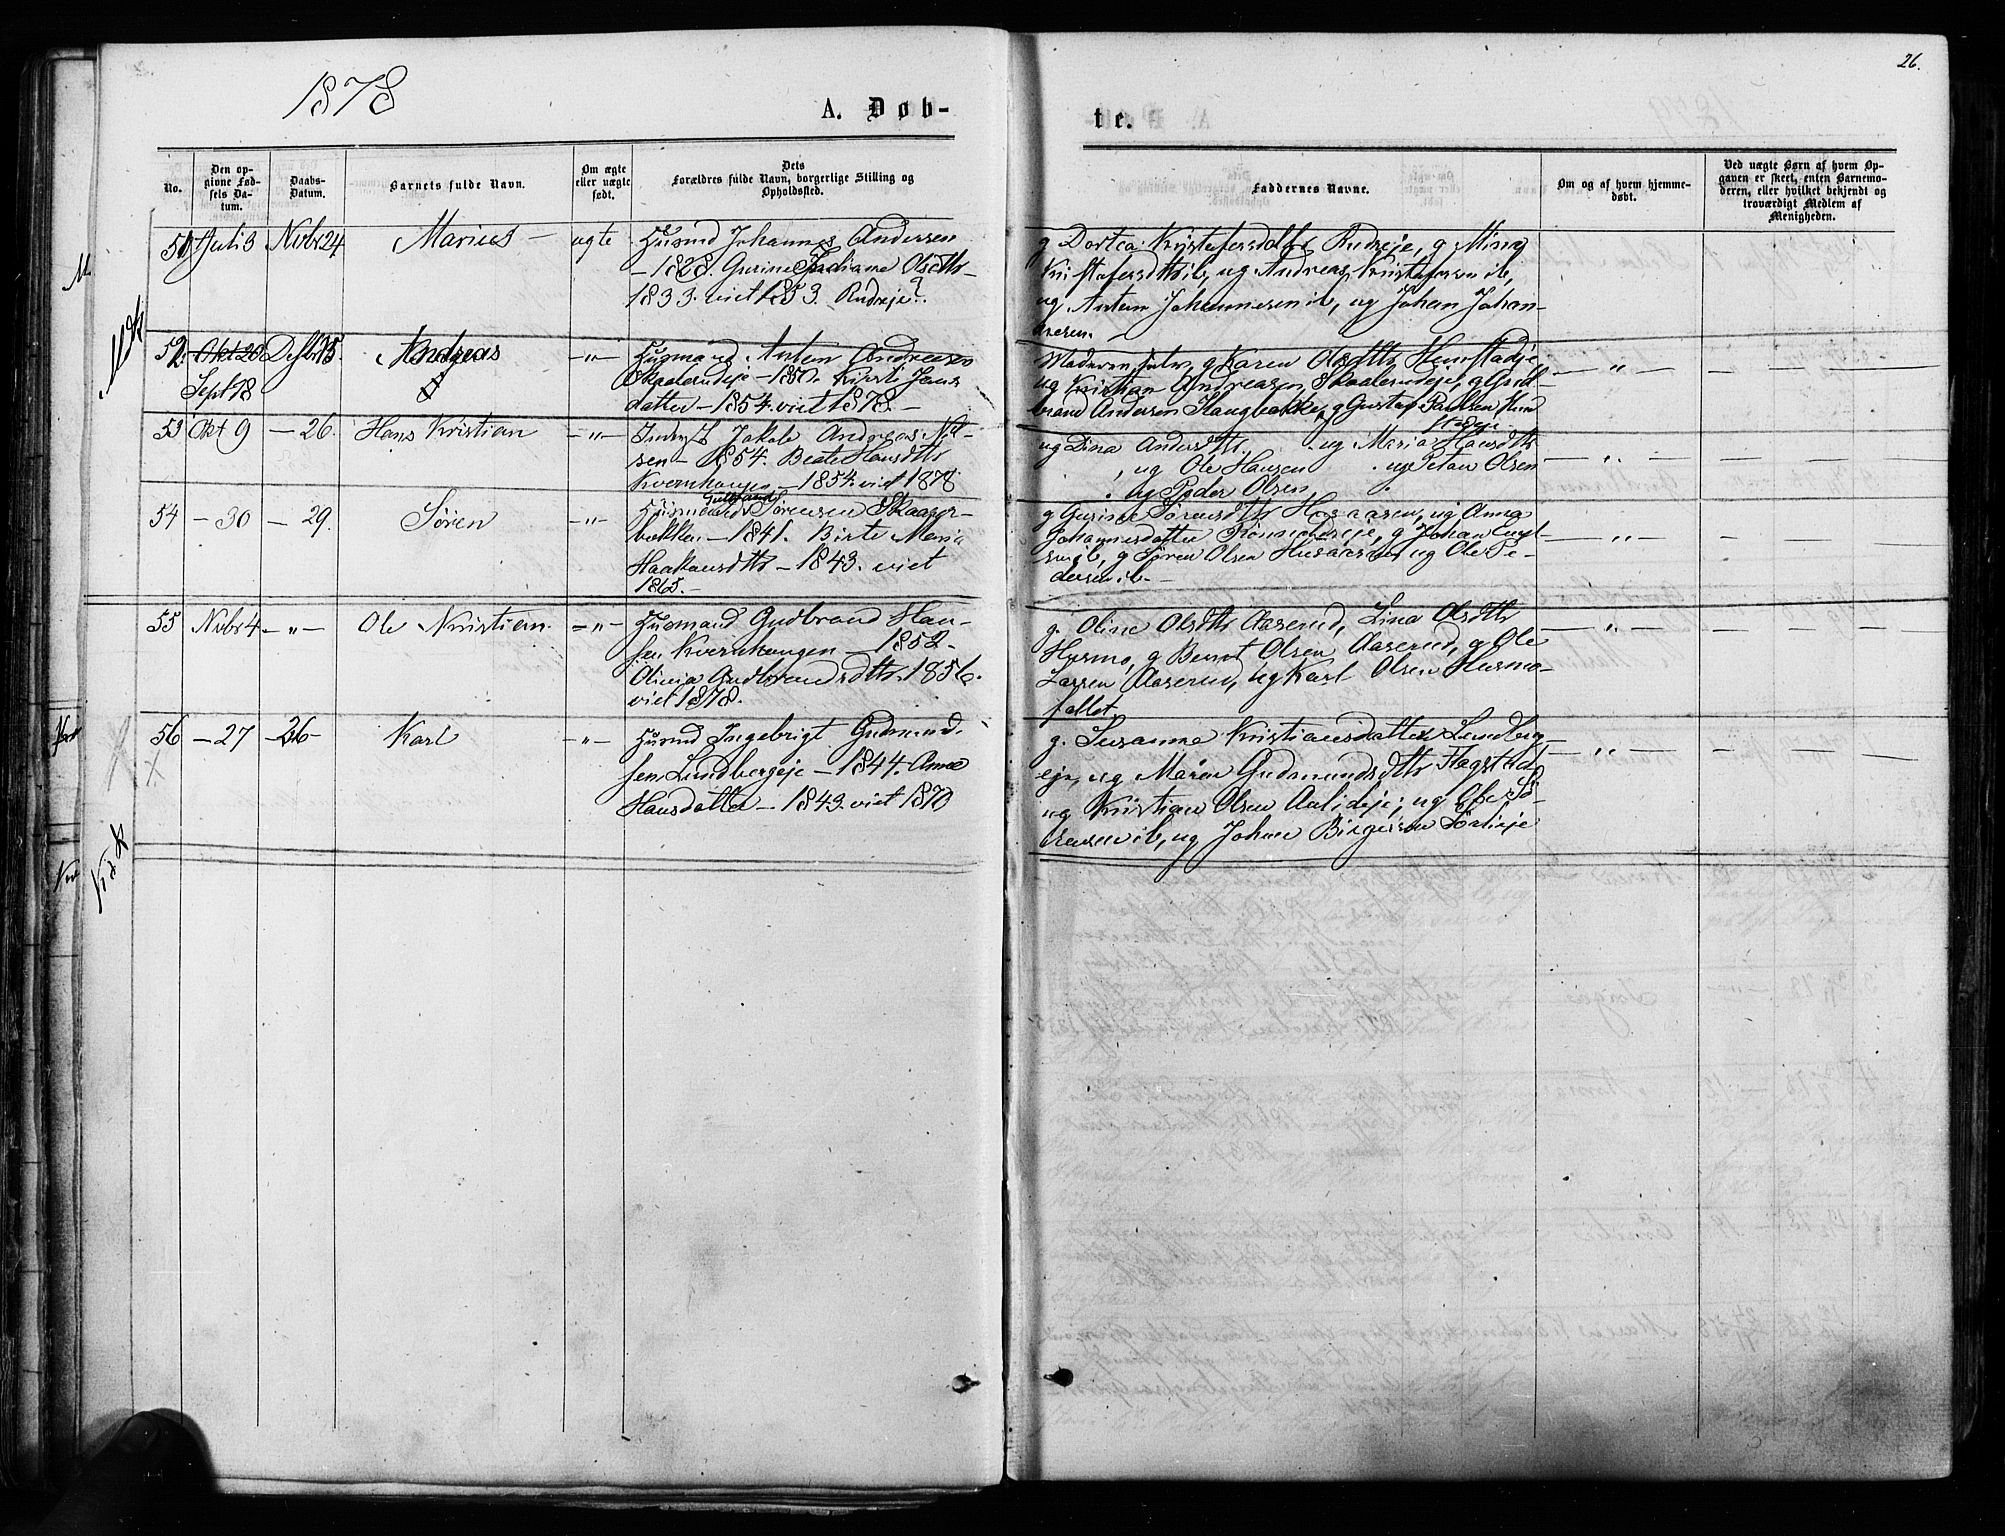 26.
1878
A. Døb-
te.
No.
Den op-
givne Fød-
sels Da-
tum.
Daabs-
Datum.
Barnets fulde Navn.
Om ægte
eller uægte
født.
Dets
Forældres fulde Navn, borgerlige Stilling og
Opholdssted.
Faddernes Navne.
Om og af hvem hjemme-
døbt.
Ved uægte Børn af hvem Op-
gaven er skeet, enten Barnemo-
deren, eller hvilket bekjendt og
troværdigt Medlem af
Menigheden.
51 Juli 3 Nvbr 24 Marius – ægte
Husmd Johannes Andersen
– 1828. Gurine Olsdttr –
1833. viet 1853. Rudseje?
g Dortea Kristofersdttr Rudseje, g Mina
Kristofersdttr ib, ug Andreas Kristofersen ib,
ug Anton Johannesen ib, ug Johan Johan-
nesen.
52 Okt 20 Desbr 15. Andreas –"–
Sept 18
Husmand Anton Andreasen
Skaalerudeje – 1850. Kirsti Jans
datter – 1854. viet 1878. –
Moderen selv, g Karen Olsdttr Hemstadje
ug Kristian Andreasen Skaalerudeje, g Guld-
brand Andersen Haugbakke, g Gustaf Paulsen
– " – – – –
53 Okt 9 – 26. Hans Kristian –"–
Jakob Andreas Nil-
sen – 1854. Beate Hansdttr
Kvernhaugen – 1854. viet 1878
ug Lina Andersdttr. ug Maria Hansdttr
, ug Ole Hansen . ug Petan Olsen
. ug Peder Olsen .
– " – – – –
54 – 30 – 29. Søren –"–
Husmand Gulbrand Sørensen Skaager-
bakken – 1841. Birte Maria
Haakansdttr – 1843. viet
1865. –
g Gurine Sørensdttr Husaasen, ug Anna
Johannesdatter, g Johan
ib, g Søren Olsen Husaasen, ug Ole Pe-
dersen ib –
– " – – – –
55 Nvbr 4 – " – Ole Kristian. –"–
Husmand Gudbrand Han-
sen Kvernhaugen – 1852 –
Olivia Gudbrandsdttr. 1856.
viet 1878.
g. Oline Olsdttr Aaserud, Lina Olsdttr
Husmo, g Bernt Olsen Aaserud, g Ole
Larsen Aaserud, ug Karl Olsen Husmo-
fallet
– " – – – –
56 – 27 – 26 – Karl –"–
Husmd Ingebrigt Gudmund-
sen Lundbergeje – 1844. Anne
Hansdatter – 1843. viet 1870
g. Susanne Kristiansdatter Lundberg-
eje, ug Maren Gudmundsdttr Flagstad
ug Kristian Olsen Aalideje, ug Ole Sø-
rensen ib, ug Johan Birgersen Sørlieje
– " – – – –